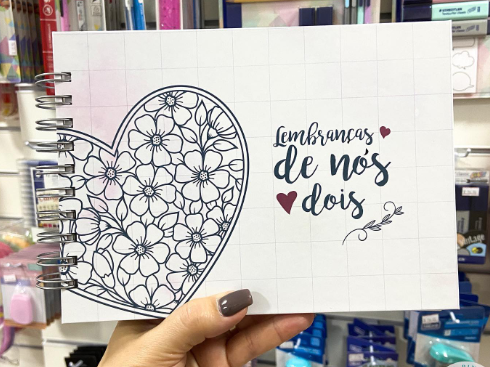 Lembranças
de nós
dois